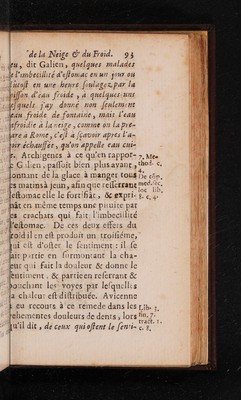 de la Neige & du Froid. 93
eu, dit Galien, quelques malades
de l'imbecilité d'estomac en un jour ou
plutost en une heure soulagez par la
boisson d'eau froide, à quelques uns
desquels j'ay donné non seulement
l'eau froide de fontaine, mais l'eau
refroidie à la neige, comme on la pre-
pare à Rome, c'est à sçavoir apres l'a-
voir échauffée, qu'on appelle eau cui-
te. Archigenes à ce qu'en rappor-
te Galien, passoit bien plus avant,
donnant de la glace à manger tous
les matins à jeun, afin que resserrant
l'estomac elle le fortifiât, & expri-
mât en même temps une pituite par
les crachats qui fait l'imbecilité
l'estomac. De ces deux effets du
froid il en est produit un troisiéme,
qui est d'oster le sentiment: il se
fait partie en surmontant la cha-
leur qui fait la douleur & donne le
sentiment. & partie en resserrant &
bouchant les voyes par lesquelles
la chaleur est distribuée. Avicenne
a eu recours à ce remede dans les
vehementes douleurs de dents, lors
qu'il dit, de ceux qui ostent le senti-
7. Me-
thod. c.
4.
De cõp.
med. sec.
loc. lib.
8. c. 4.
Lib. 3.
fin. 7.
tract. 1.
c. 8.